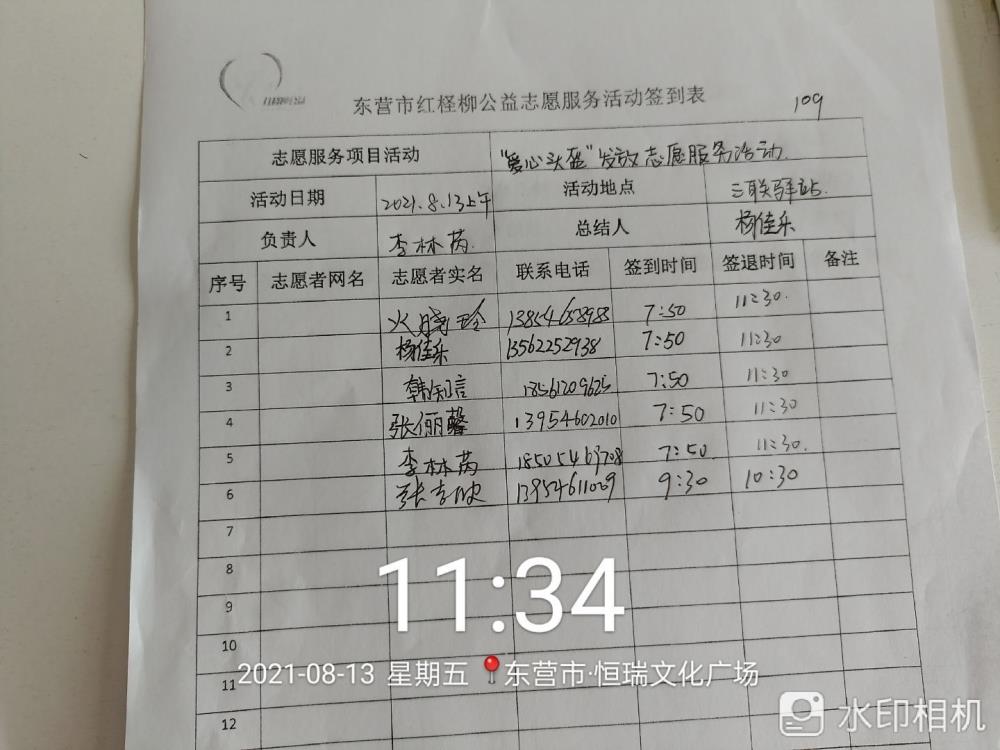 东营市红柽柳公益志愿服务活动签到表
109
志愿服务项目活动 "爱心头盔"发放志愿服务活动
活动日期 2021.8.13上午 活动地点 三联驿站.
负责人 李林芮. 总结人 杨佳乐
序号 志愿者网名 志愿者实名 联系电话 签到时间 签退时间 备注
1 火晓玲 13854658988 7:50 11:30.
2 杨佳乐 13562252938 7:50 11:30
3 韩知言 18561209625 7:50 11:30
4 张俪馨 13954602010 7:50 11:30
5 李林芮 18505469708 7:50. 11:30.
6 13954611009 9:30 10:30
7
8
9
10
11
12
11:34
2021-08-13 星期五 东营市·恒瑞文化广场
水印相机